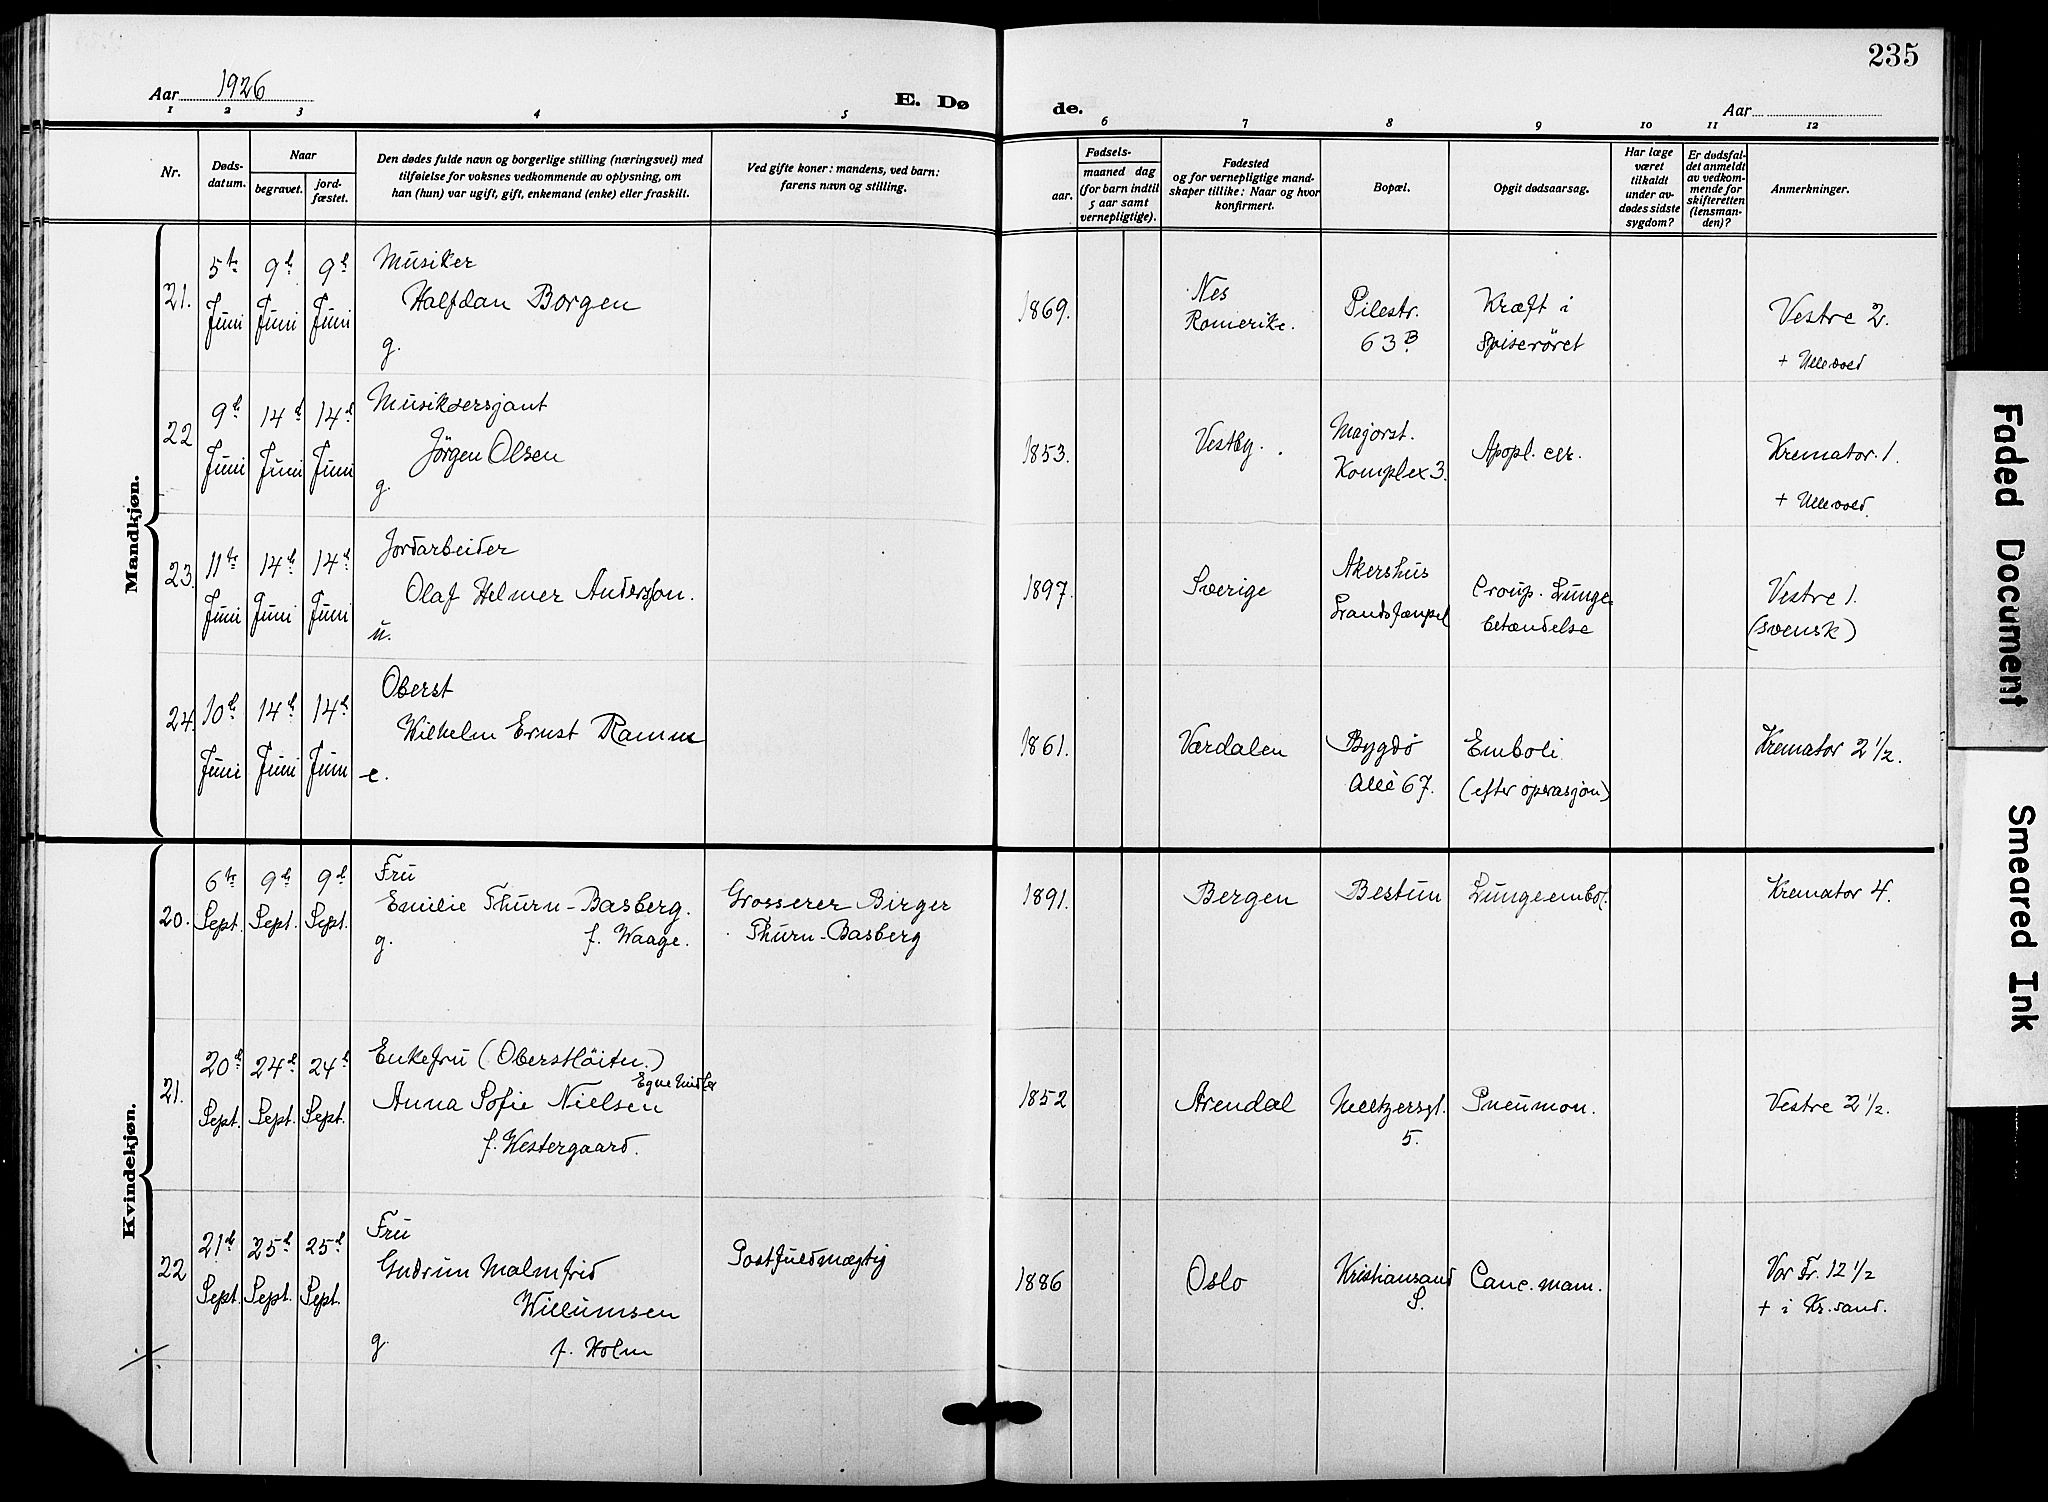 235
Aar 1926
E. Dø de.
Aar
1 2 3 4 5 6 7 8 9 10 11 12
Nr.
Døds-
datum.
Naar
begravet.
jord-
fæstet.
Den dødes fulde navn og borgerlige stilling (næringsvei) med
tilføielse for voksnes vedkommende av oplysning, om
han (hun) var ugift, gift, enkemand (enke) eller fraskilt.
Ved gifte koner: mandens, ved barn:
farens navn og stilling.
Fødsels-
aar.
maaned dag
(for barn indtil
5 aar samt
vernepligtige).
Fødested
og for vernepligtige mand-
skaper tillike: Naar og hvor
konfirmert.
Bopæl.
Opgit dødsaarsag.
Har læge
været
tilkaldt
under av-
dødes sidste
sygdom?
Er dødsfal-
det anmeldt
av vedkom-
mende for
skifteretten
(lensman-
den)?
Anmerkninger.
Mandkjøn.
21.
5te Juni
9de Juni
9de Juni
Musiker
Halfdan Borgen
g.
1869.
Nes
Romerike.
Pilestr.
63 B.
Kræft i
spiserøret
Vestre 2.
+ Ullevold
22
9de Juni
14de Juni
14de Juni
Musiksersjant
Jörgen Olsen
g.
1853.
Vestby.
Majorst.
Komplex 3.
Apopl. cer.
Kremator. 1.
+ Ullevold.
23.
11te Juni
14de Juni
14de Juni
Jordarbeider
Olaf Helmer Andersson.
u.
1897.
Sverige
Akershus
Croup. Lunge
betændelse
Vestre 1.
(svensk)
24.
10de Juni
14de Juni
14de Juni
Oberst
Wilhelm Ernst Ramm
e.
1861.
Værdalen
Bygdö
Allé 67.
Emboli
(efter operasjon)
Kremator 2 1/2.
Kvindekjøn.
20.
6te Sept.
9de Sept.
9de Sept.
Fru
Emilie Thurn-Basberg.
g. f. Waage.
Grosserer Birger
Thurn-Basberg
1891.
Bergen
Bestun
Lungeembol.
Kremator 4.
21.
20de Sept.
24de Sept.
24de Sept.
Enkefru (Oberstlöitn.)
Anna Sofie Nielsen
f. Westergaard.
1852
Arendal
Meltzersgt.
5.
Pneumon.
Vestre 2 1/2.
22
21de Sept.
25de Sept.
25de Sept.
Fru
Gudrun Malmfrid
Willumsen
g f. Holm
Postfuldmægtig
1886
Oslo
Kristiansand
S.
Canc. mam.
Vor Fr. 12 1/2
+ i Kr.sand.
Faded Document
Smeared Ink